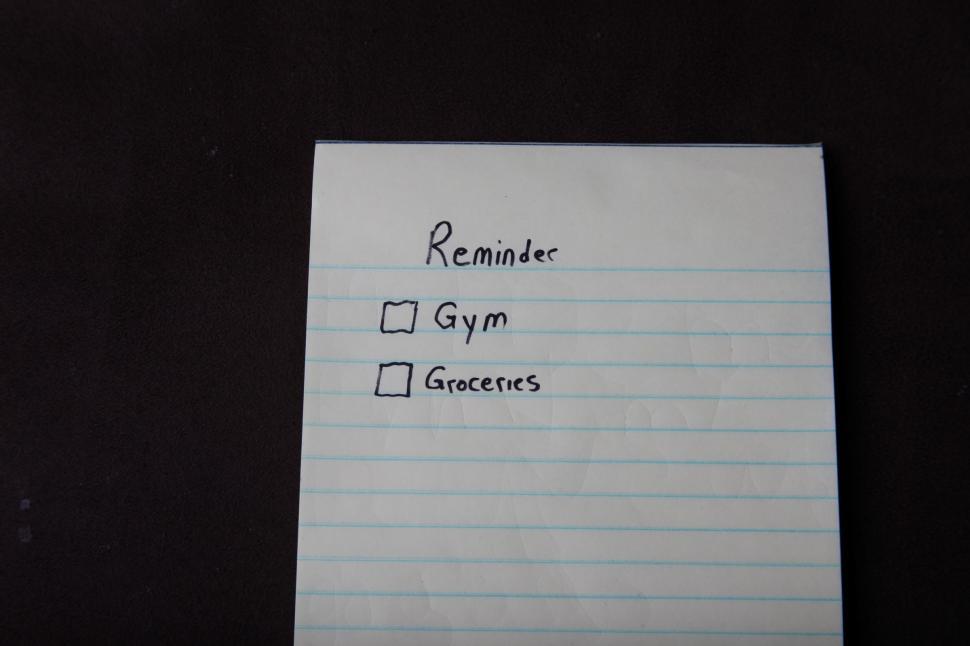 Reminder
Gym
Groceries